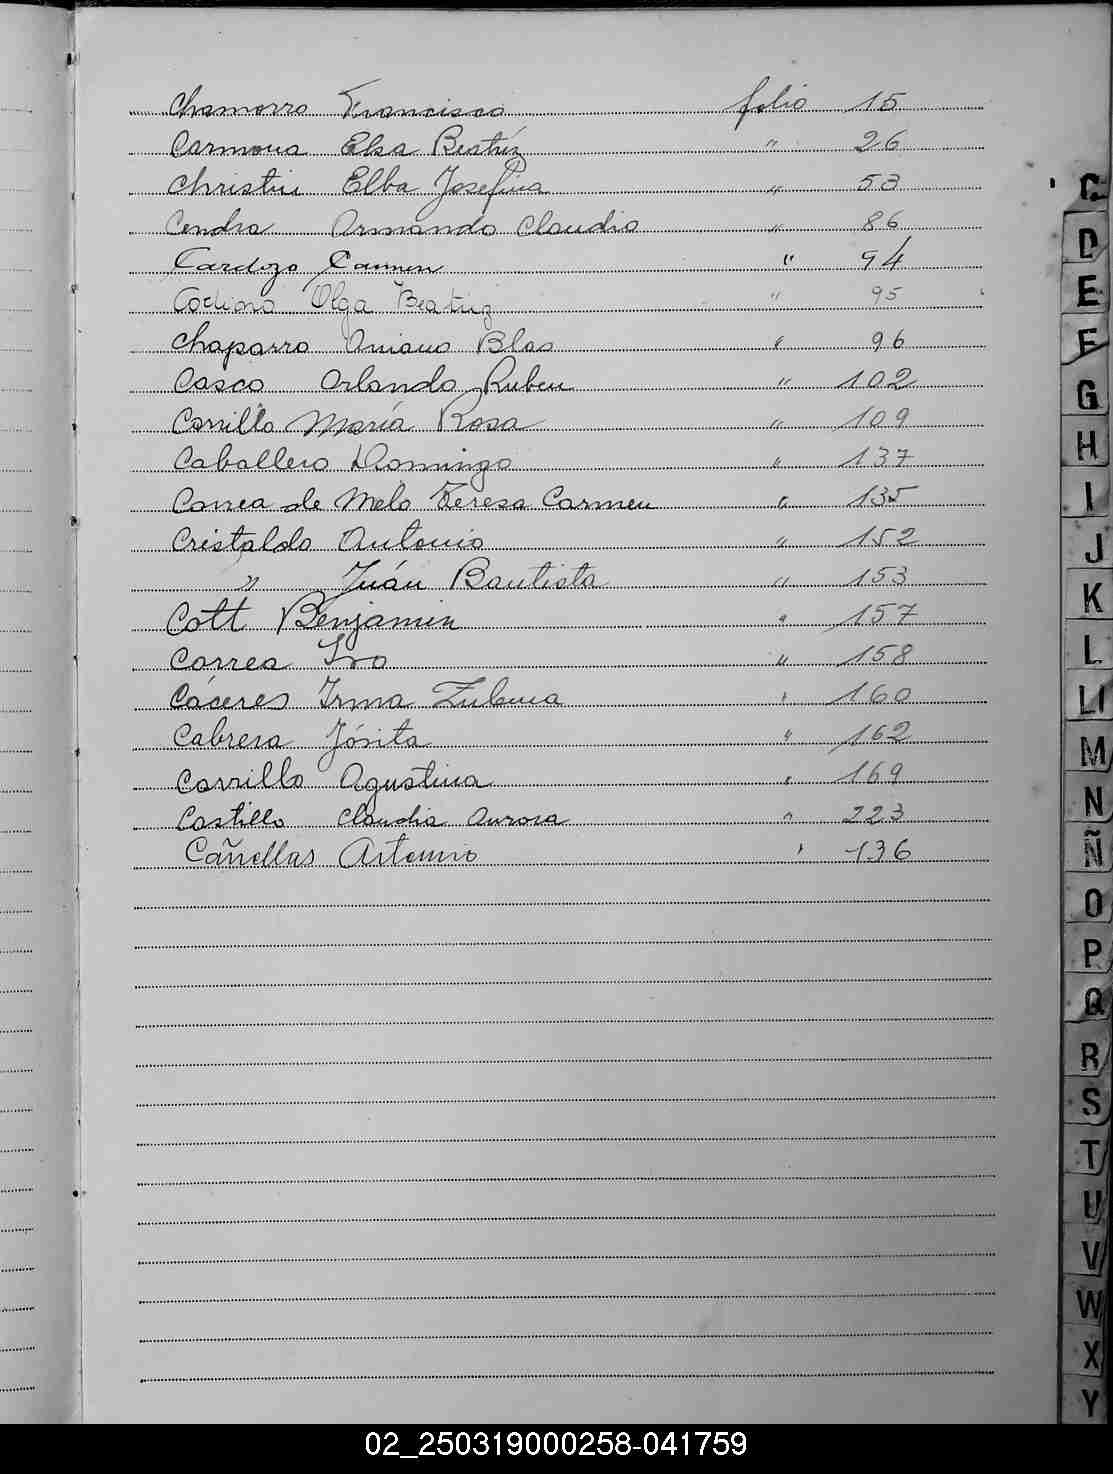 Chamorro Francisco folio 15
Carmona Elsa Beatríz " 26
Christin Elba Josefina " 53
Cendra Armando Claudio " 86
Cardozo Carmen " 94
Olga Beatriz " 95
Chaparro Aniano Blas " 96
Casco Orlando Ruben " 102
Carrillo María Rosa " 109
Caballero Domingo " 137
Correa de Melo Teresa Carmen " 135
Cristaldo Antonio " 152
" Juán Bautista " 153
Cott Benjamin " 157
Correa Ivo " 158
Cáceres Irma Zulema " 160
Cabrera Jósita " 162
Carrillo Agustina " 169
Castillo Claudia Aurora " 223
Cañellas Artemio " 136
C
D
E
F
G
H
I
J
K
L
Ll
M
N
Ñ
O
P
Q
R
S
T
U
V
W
X
Y
02_250319000258-041759